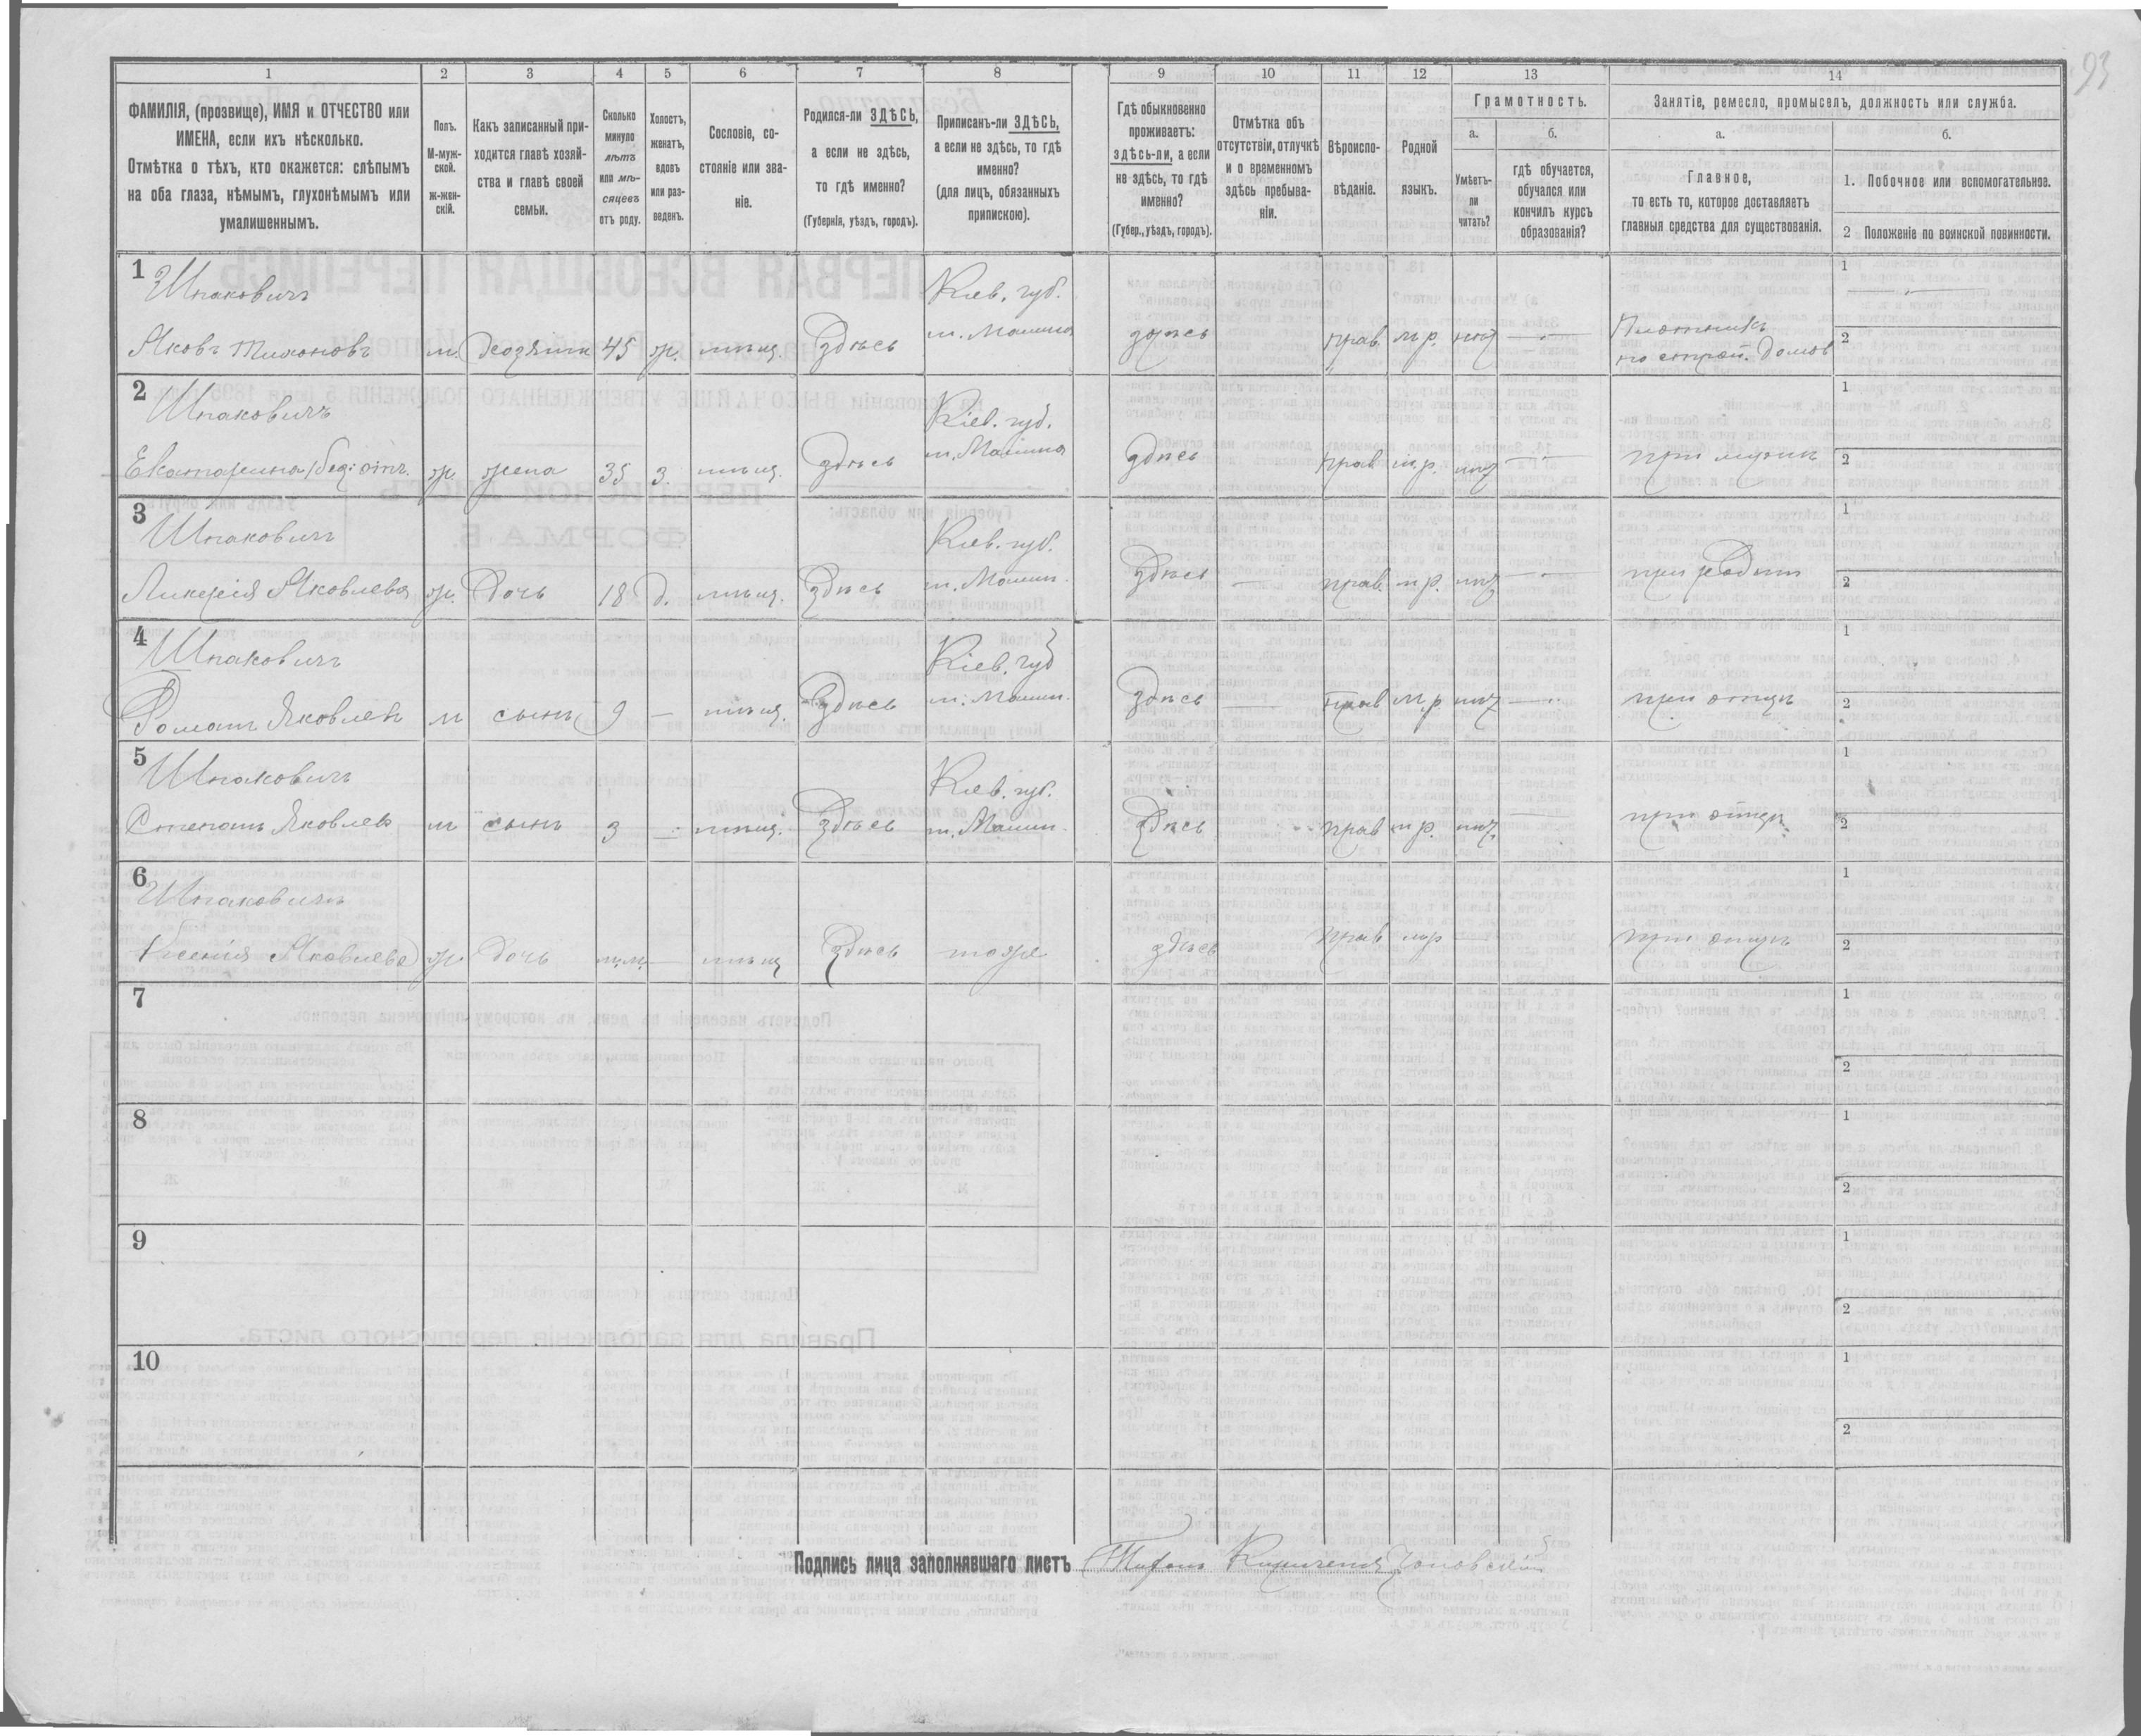 93
1 2 3 4 5 6 7 8 9 10 11 12 13 14
ФАМИЛІЯ, (прозвище), ИМЯ и ОТЧЕСТВО или
ИМЕНА, если ихъ нѣсколько.
Отмѣтка о тѣхъ, кто окажется: слѣпымъ
на оба глаза, нѣмымъ, глухонѣмымъ или
умалишеннымъ.
Полъ.
М-муж-
ской.
ж-жен-
скій.
Какъ записанный при-
ходится главѣ хозяй-
ства и главѣ своей
семьи.
Сколько
минуло
лѣтъ
или мѣ-
сяцевъ
отъ роду.
Холостъ,
женатъ,
вдовъ
или раз-
веденъ.
Сословіе, со-
стояніе или зва-
ніе.
Родился-ли ЗДѢСЬ,
а если не здѣсь,
то гдѣ именно?
(Губернія, уѣздъ, городъ).
Приписанъ-ли ЗДѢСЬ,
а если не здѣсь, то гдѣ
именно?
(для лицъ, обязанныхъ
припискою).
Гдѣ обыкновенно
проживаетъ:
здѣсь-ли, а если
не здѣсь, то гдѣ
именно?
(Губер., уѣздъ, городъ).
Отмѣтка объ
отсутствіи, отлучкѣ
и о временномъ
здѣсь пребыва-
ніи.
Вѣроиспо-
вѣданіе.
Родной
языкъ.
Грамотность.
а.
Умѣетъ-
ли
читать?
б.
гдѣ обучается,
обучался или
кончилъ курсъ
образованія?
Занятіе, ремесло, промыселъ, должность или служба.
а.
Главное,
то есть то, которое доставляетъ
главныя средства для существованія.
б.
1. Побочное или вспомогательное.
2 Положеніе по воинской повинности.
1
Шпаковичъ Кіев. губ.
Яковъ Тихоновъ м. хозяинъ 45 ж. мѣщ. здѣсь м. Малина здѣсь прав. м.р. нѣт Плотникъ
по строй. домов
1
2
2
Шпаковичъ Кіев. губ.
Екатерина (без отч. ж. жена 35 з. мѣщ. здѣсь м. Малина здѣсь прав м.р. нѣт при мужѣ
1
2
3
Шпаковичъ Кіев. губ.
Яковлева ж. дочь 18 д. мѣщ. здѣсь м. Малин. здѣсь прав. м.р. нѣт
1
2
4
Шпаковичъ Кіев. губ
Романъ Яковлев м сынъ 9 мѣщ. здѣсь м. Малин. здѣсь прав м.р нѣт при отцѣ
1
2
5
Шпаковичъ Кіев. губ.
Степанъ Яковлев м сынъ 3 мѣщ. здѣсь м. Малин. здѣсь прав м.р. нѣт. при отцѣ
1
2
6
Шпаковичъ
Ксенія Яковлева ж. дочь мѣщ здѣсь тоже здѣсь прав мр при отцѣ
1
2
7
1
2
8
1
2
9
1
2
10
1
2
Подпись лица заполнявшаго листъ